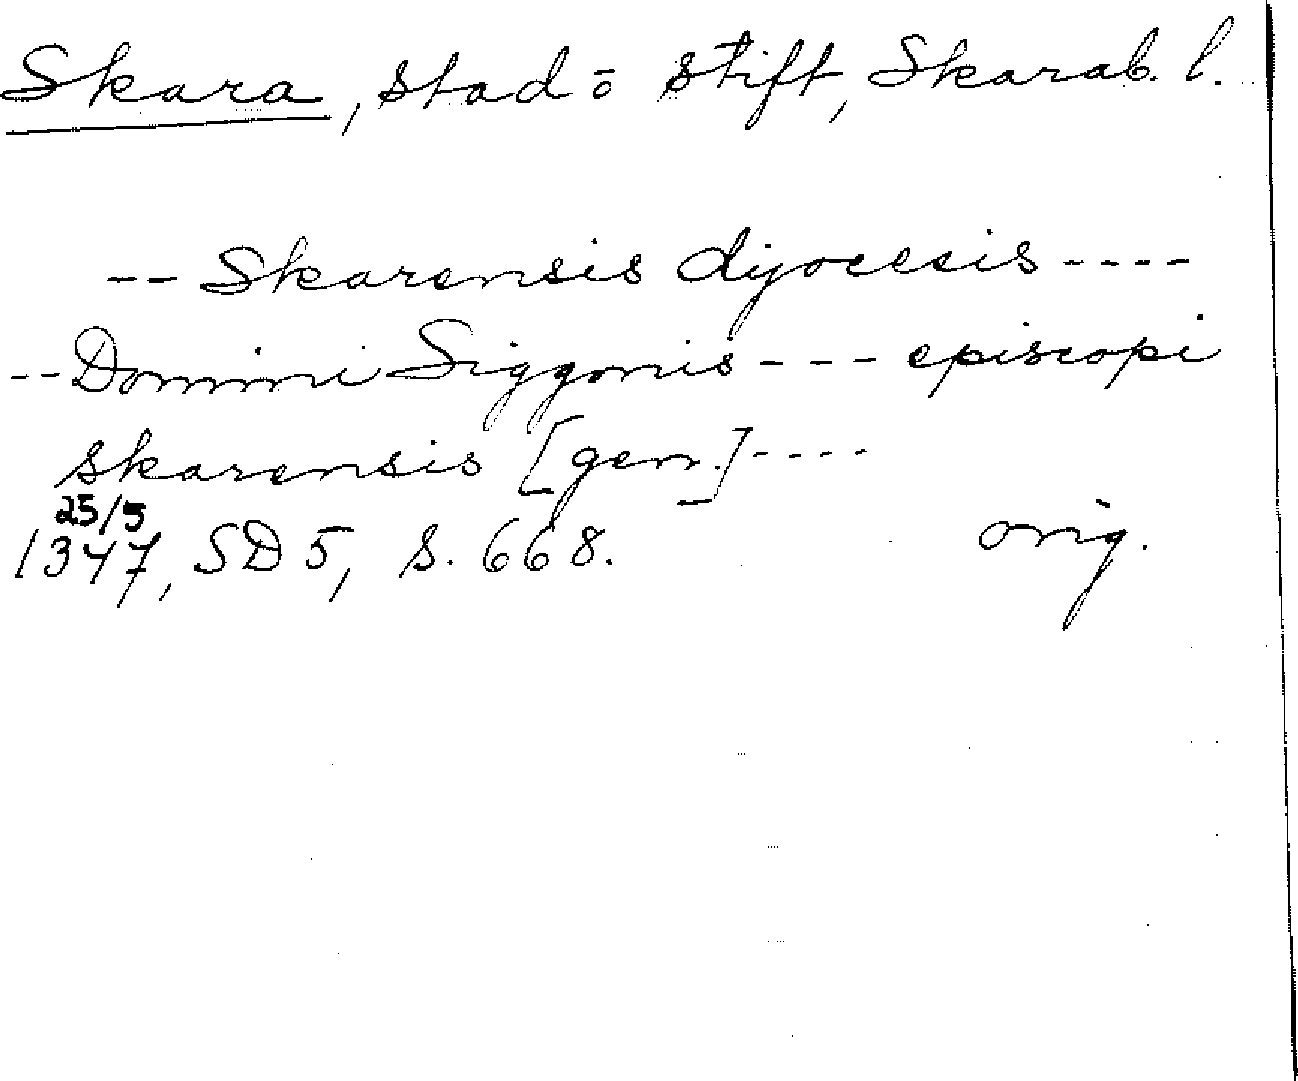 Skara, stad o. stift, Skarab. l.
-- Skarensis dyocesis ----
-- Domini Siggonis --- episcopi
skarensis [gen.] ----
25/5
1347, SD 5, s. 668. orig.